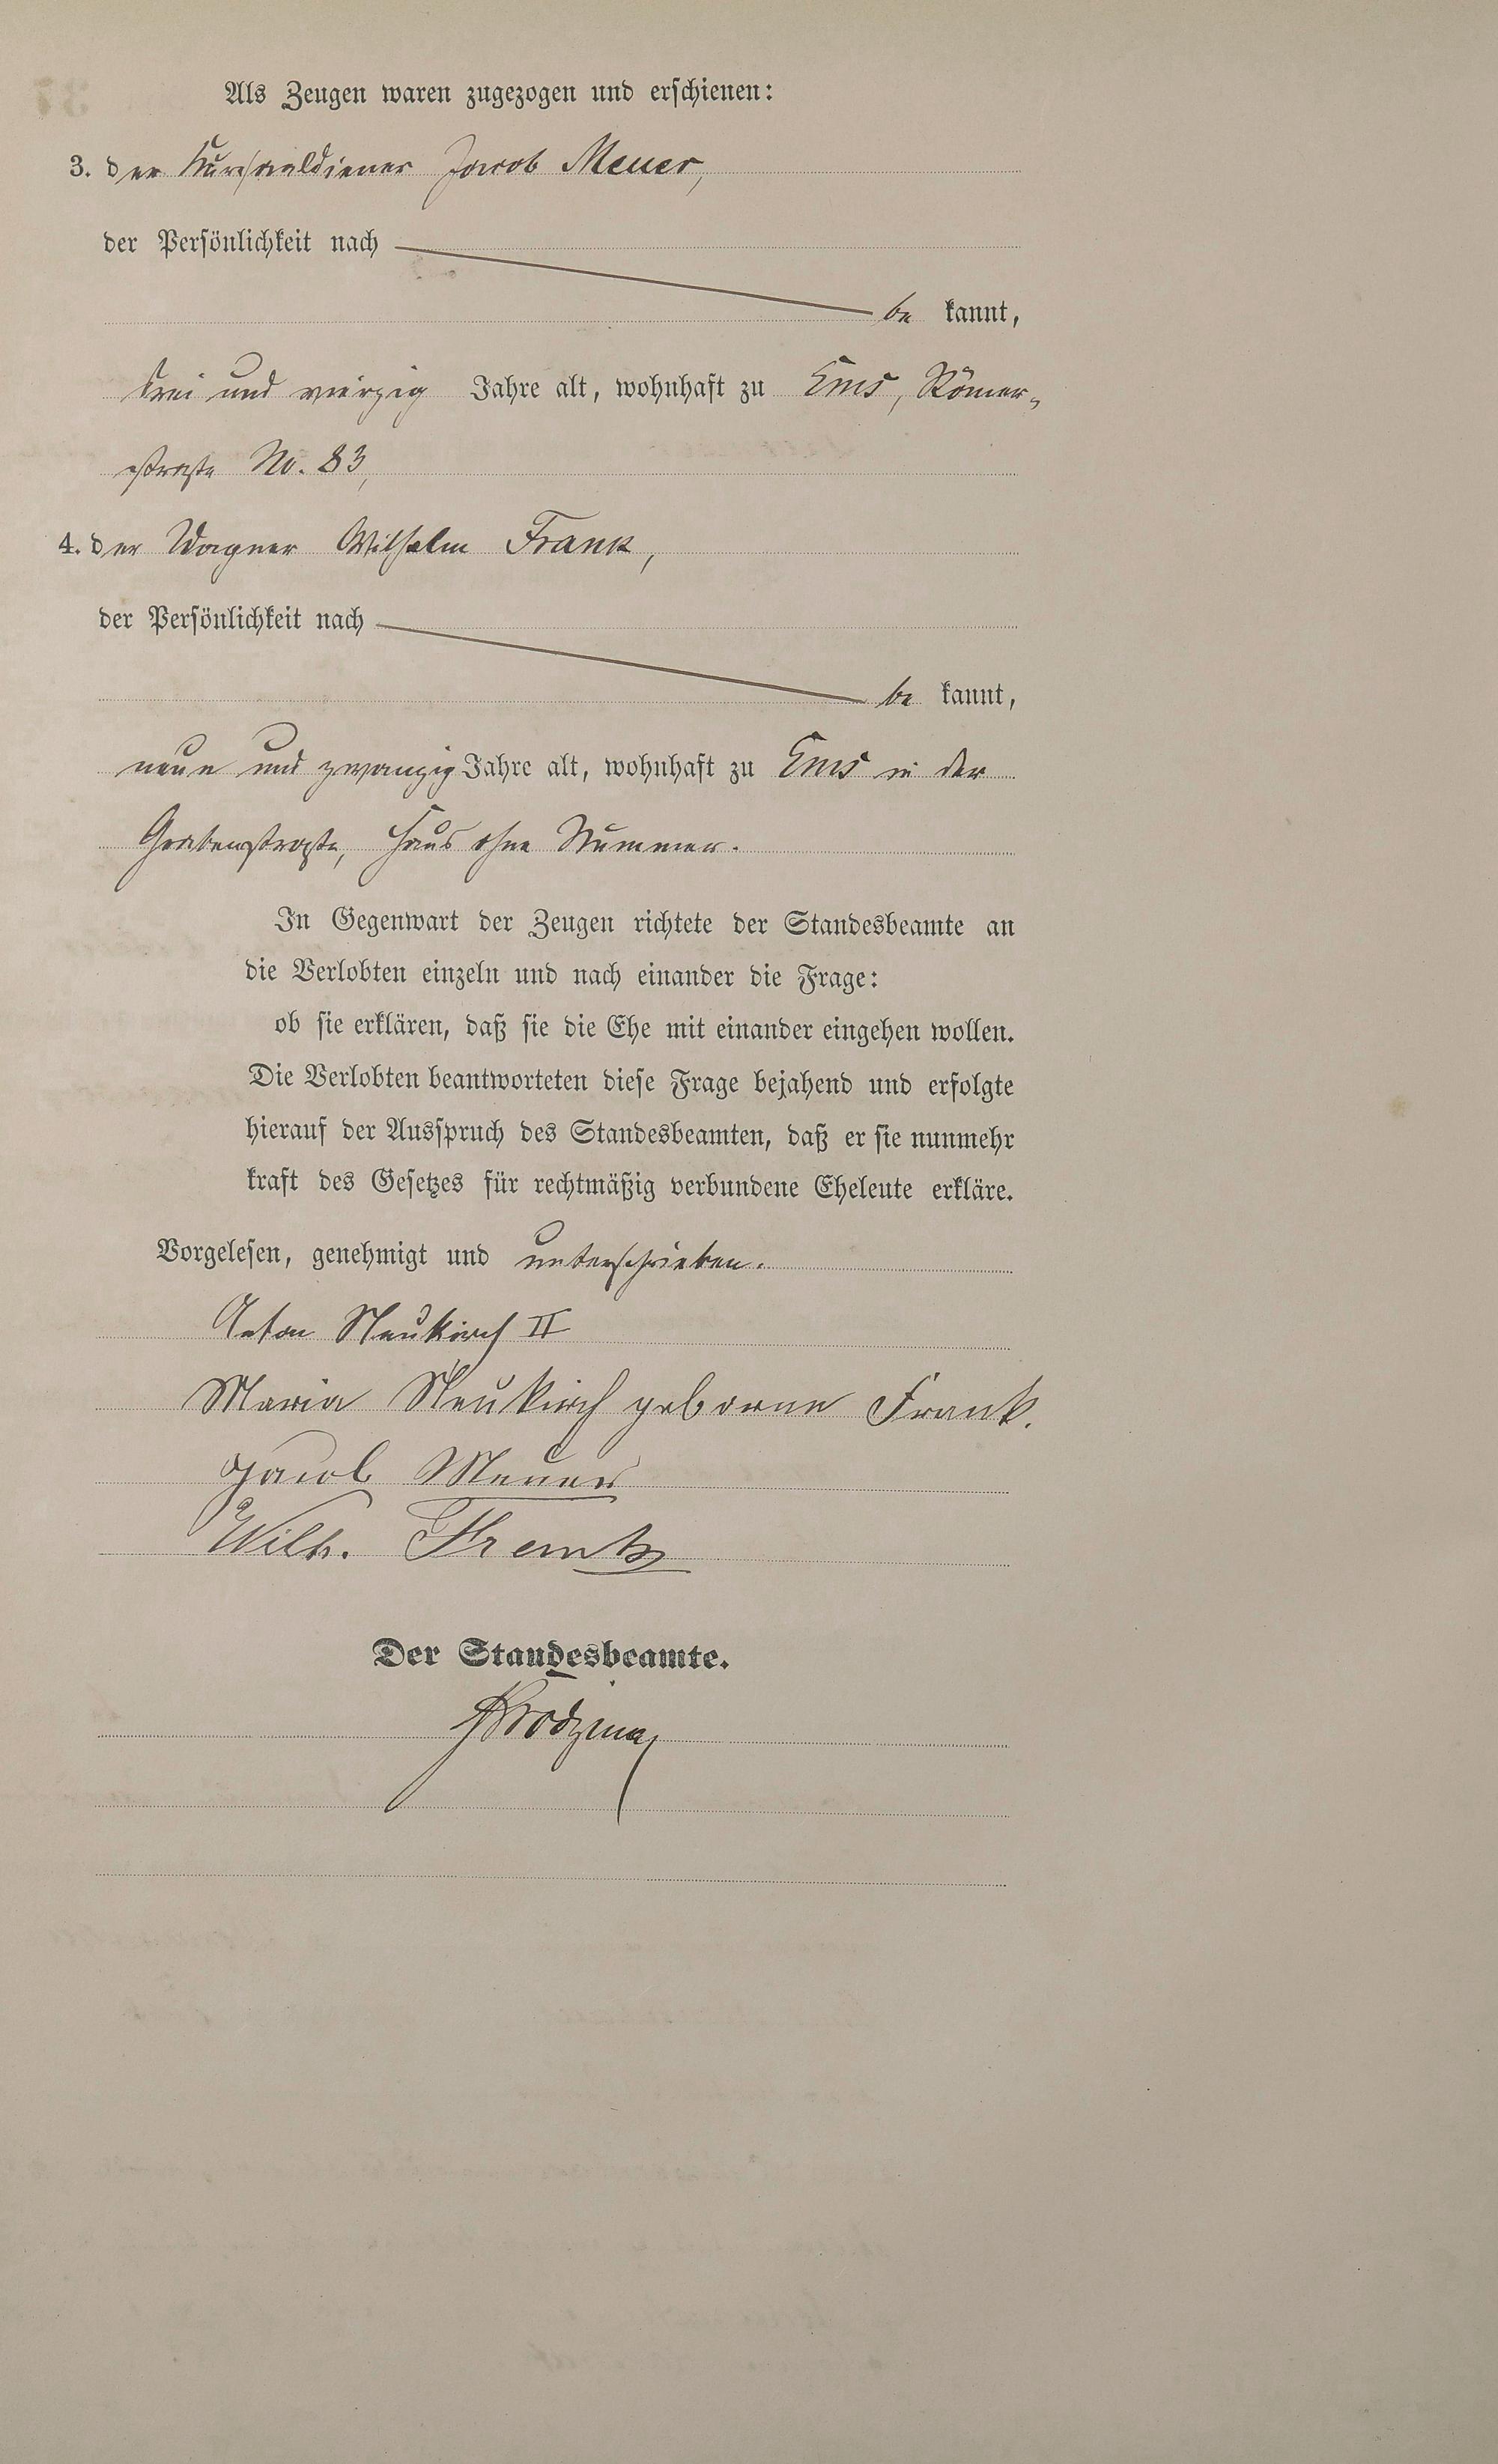 Als Zeugen waren zugezogen und erschienen:
3. der Kursaaldiener Jacob Meuer,
der Persönlichkeit nach
be kannt,
drei und vierzig Jahre alt, wohnhaft zu Ems, Römer-
straße No. 83,
4. der Wagner Wilhelm Frank,
der Persönlichkeit nach
be kannt,
neun und zwanzig Jahre alt, wohnhaft zu Ems in der
Grabenstraße, Haus ohne Nummer.
In Gegenwart der Zeugen richtete der Standesbeamte an
die Verlobten einzeln und nach einander die Frage:
ob sie erklären, daß sie die Ehe mit einander eingehen wollen.
Die Verlobten beantworteten diese Frage bejahend und erfolgte
hierauf der Ausspruch des Standesbeamten, daß er sie nunmehr
kraft des Gesetzes für rechtmäßig verbundene Eheleute erkläre.
Vorgelesen, genehmigt und unterschrieben.
Anton Neukirch II
Maria Neukirch geborne Frank.
Jacob Meuer
Wilh. Frank
Der Standesbeamte.